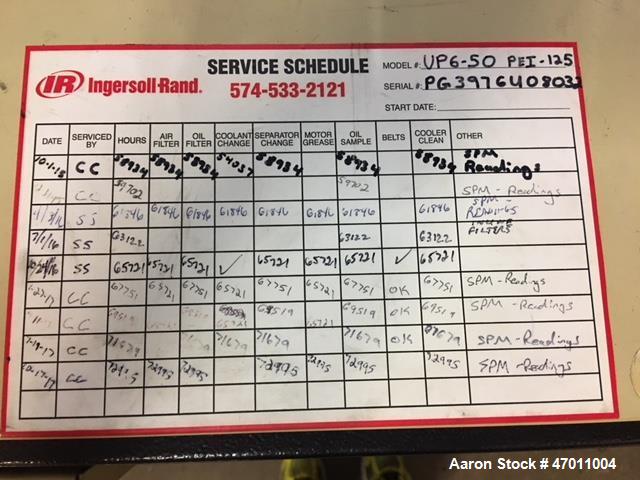 SERVICE SCHEDULE
MODEL #: UP6-50 PEI-125
IR Ingersoll-Rand.
574-533-2121
SERIAL #: PG3976U08032
START DATE:
DATE SERVICED BY HOURS AIR FILTER OIL FILTER COOLANT CHANGE SEPARATOR CHANGE MOTOR GREASE OIL SAMPLE BELTS COOLER CLEAN OTHER
10-1-15 CC 58934 58934 58934 54057 58934 58934 58934 SPM Readings
CC 59702 59702 SPM-Readings
SS 61846 61846 61846 61846 61846 61846 61846 61846 SPM-READINGS
7/1/16 SS 63122 63122 63122 FILTERS
SS 65721 65721 65721 ✓ 65721 65721 65721 ✓ 65721
CC 67751 65721 67751 65721 67751 65721 67751 OK 67751 SPM-Readings
CC 69519 69519 69519 65721 69519 OK 69519 SPM-Readings
7-19-17 CC 71679 71679 71679 71679 71679 71679 OK 71679 SPM-Readings
CC 72995 72995 72995 72995 72995 72995 72995 SPM-Readings
Aaron Stock # 47011004